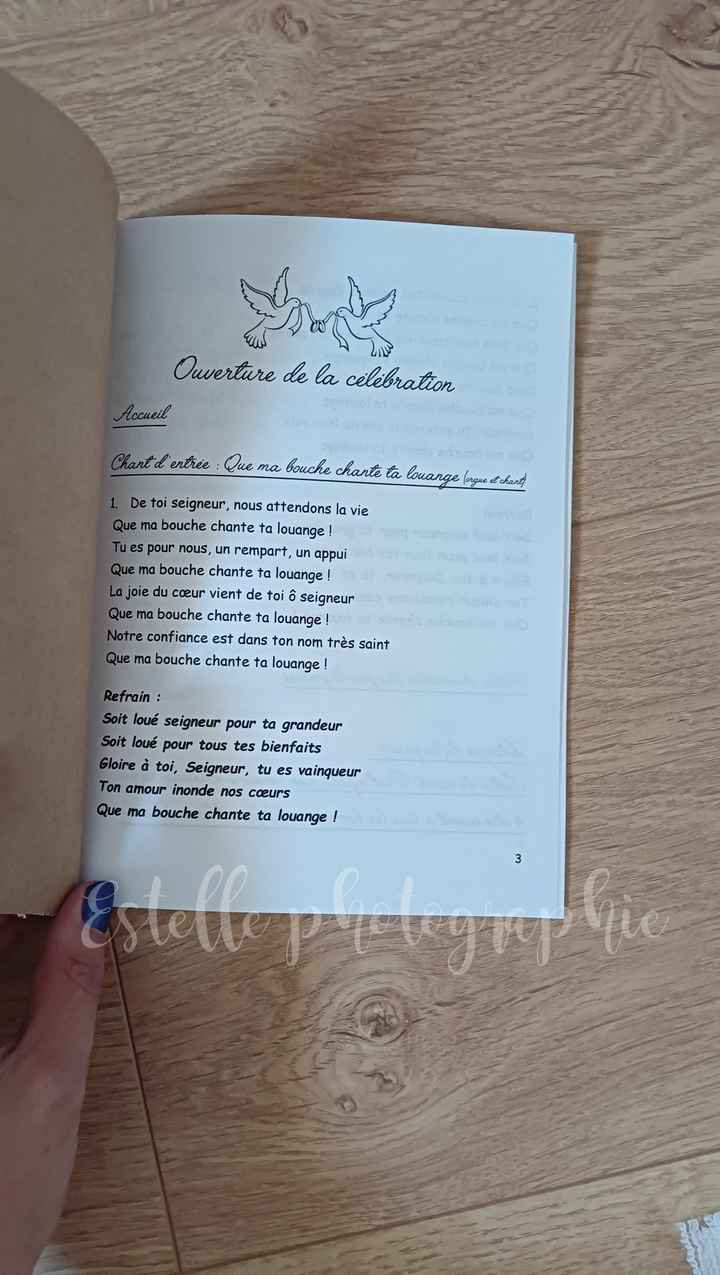 Ouverture de la célébration
Accueil
Chant d'entrée : Que ma bouche chante ta louange (orgue et chant)
1. De toi seigneur, nous attendons la vie
Que ma bouche chante ta louange !
Tu es pour nous, un rempart, un appui
Que ma bouche chante ta louange !
La joie du cœur vient de toi ô seigneur
Que ma bouche chante ta louange !
Notre confiance est dans ton nom très saint
Que ma bouche chante ta louange !
Refrain :
Soit loué seigneur pour ta grandeur
Soit loué pour tous tes bienfaits
Gloire à toi, Seigneur, tu es vainqueur
Ton amour inonde nos cœurs
Que ma bouche chante ta louange !
3
Estelle photographie